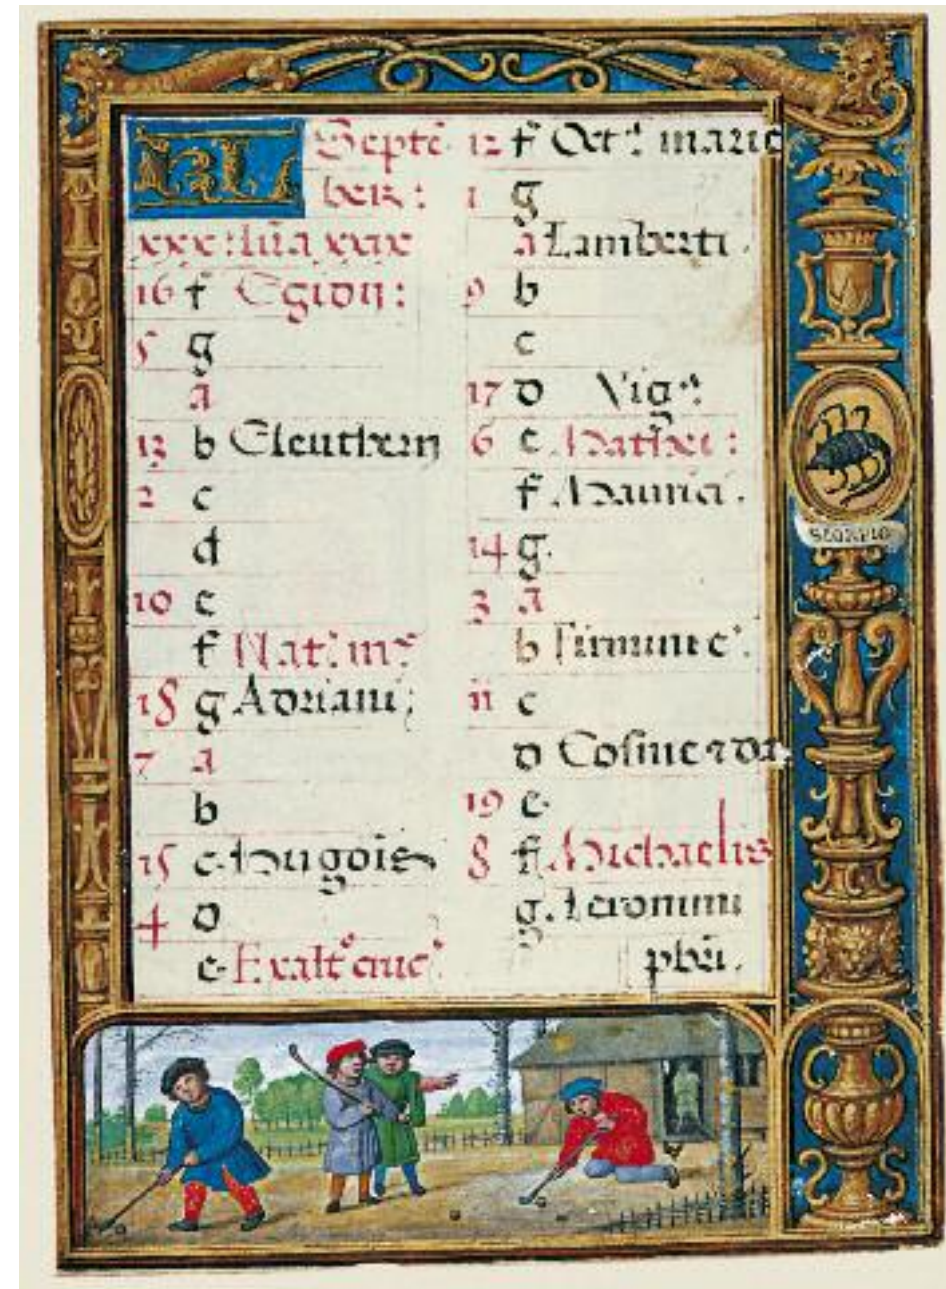 KL Septē
ber:
xxx: lūa xxix
16 f Egidii:
5 g
a
13 b Eleutherii
2 c
d
10 e
f Nat: m:
18 g Adriani;
7 a
b
15 c. Hugois
4 d
e. Exalt° cruc:
12 f Oct: marie
1 g
a Lamberti.
9 b
c
17 d Vigª:
6 e Mathei:
f Maurici.
14 g.
3 a
b Firmini e:
11 c
d Cosme 7 da
19 e.
8 f. Michaelis
g. Ieronimi
pbri.
SCORPIO